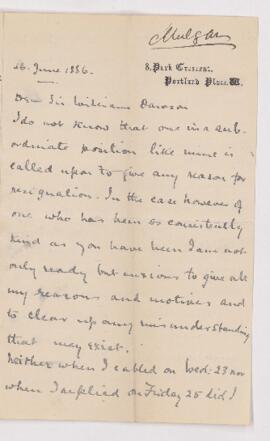 Mulgan
8, Park Crescent,
Portland Place, W.
26. June 1886.
Dear Sir William Dawson
I do not know that one in a sub-
ordinate position like mine is
called upon to give any reason for
resignation. In the case however of
one who has been so consistently
kind as you have been I am not
only ready but anxious to give all
my reasons and motives and
to clear up any misunderstanding
that may exist.
Neither when I cabled on Wed. 23 nor
when I replied on Friday 25 did I